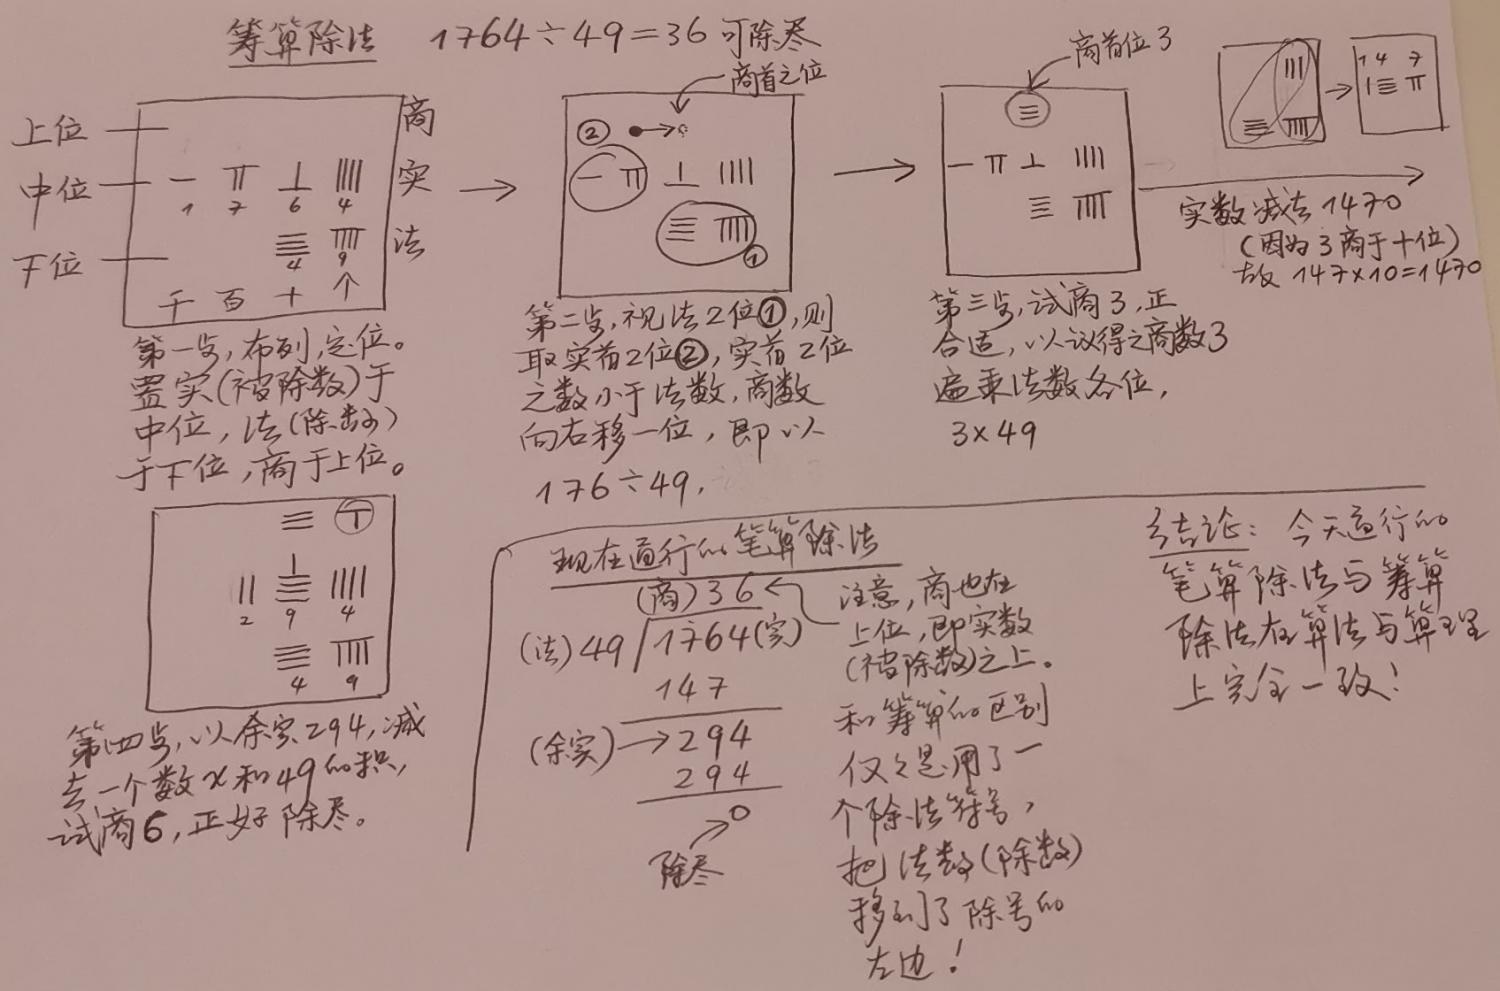 筹算除法 1764÷49=36 可除尽
上位
中位
下位
商
实
法
一 丅丅 ⊥ ||||
1 7 6 4
4 9
千 百 十 个
第一步，布列，定位。
置实(被除数)于
中位，法(除数)
于下位，商于上位。
商首之位
②
①
第二步，视法2位①，则
取实首2位②，实首2位
之数小于法数，商数
向右移一位，即以
176÷49，
商首位3
第三步，试商3，正
合适，以议得之商数3
遍乘法数各位，
3×49
1 4 7
实数减去1470
(因为3商于十位)
故 147×10=1470
2 9 4
4 9
第四步，以余实294，减
去一个数x和49的积，
试商6，正好除尽。
现在通行的笔算除法
(商)36
(法)49 1764(实)
147
(余实) 294
294
0
除尽
注意，商也在
上位，即实数
(被除数)之上。
和筹算的区别
仅仅是用了一
个除法符号，
把法数(除数)
移到了除号的
左边！
结论：今天通行的
笔算除法与筹算
除法在算法与算理
上完全一致！